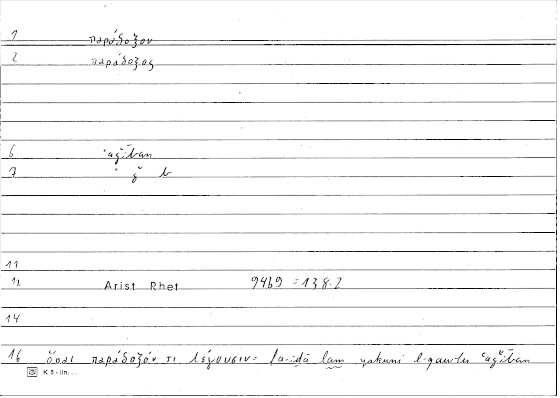 1 παράδοξον
2 παράδοξος
6 ʿaǧīban
7 ʿ ǧ b
11
12 Arist Rhet 94b9 = 138.2
14
16 ὅσαι παράδοξόν τι λέγουσιν = fa-iḏā lam yakuni l-qawlu ʿaǧīban
K 5 - lin...